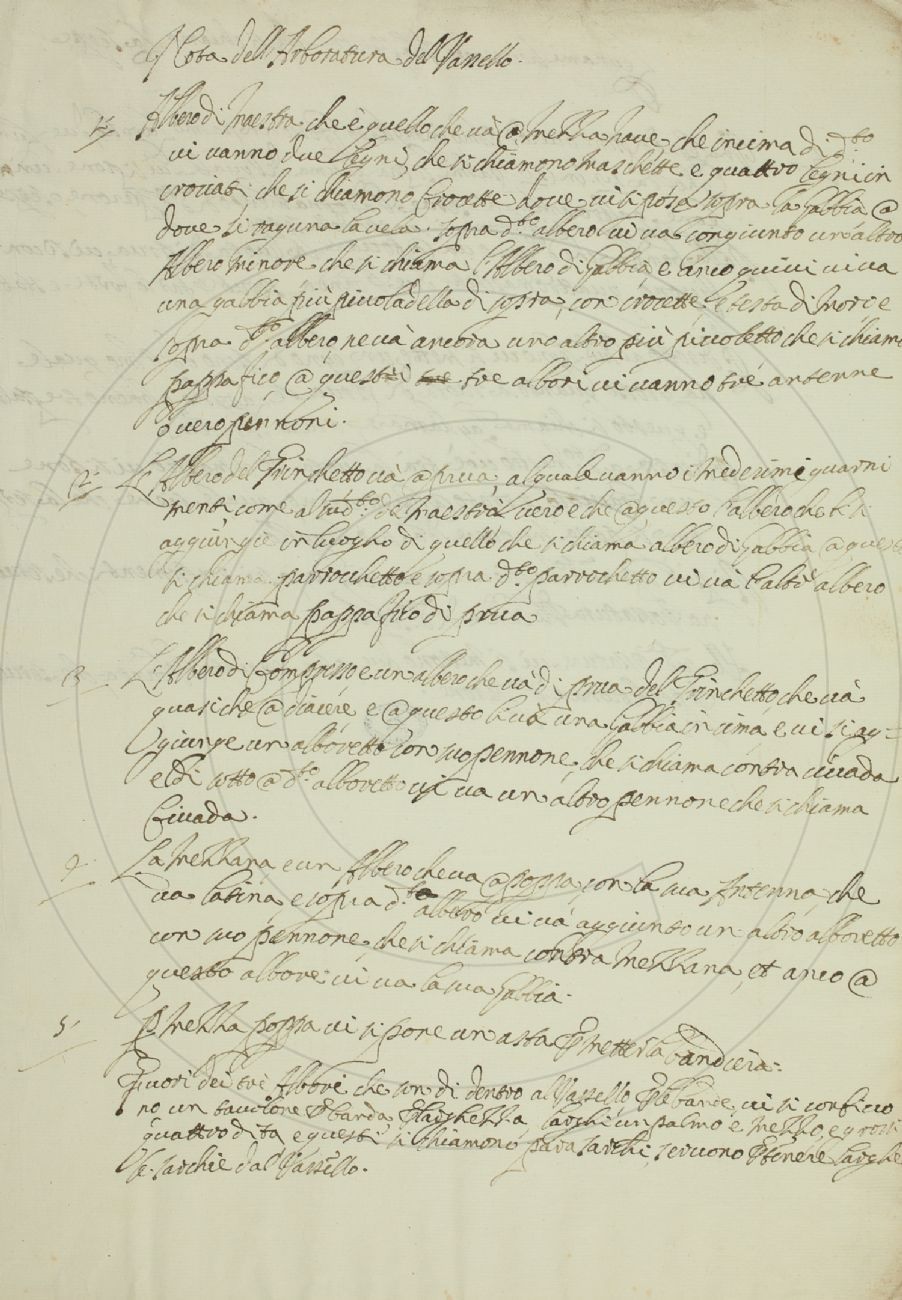 Nota dell'Arboratura del Vassello.
1° Albero di Maestra che è quello che và @ mezza nave, che in cima d. d.to
vi vanno due legni, che si chiamono maschette e quattro legni in
crociati, che si chiamono Crocette dove vi si posa sopra la gabbia @
dove si raguna la vela. Sopra d.to albero vi va congiunto un'altro
Albero minore che si chiama l'Albero di gabbia, e anco quivi vi va
una gabbia più piccola della di sopra, con crocette, e testa di moro e
sopra d.o albero, ne và ancora uno altro più piccoletto che si chiama
pappafico, @ questi tre albori vi vanno tré antenne
ò vero pennoni.
2° L'Albero del Trinchetto và @ prua, al quale vanno i medesimi guarni
menti come al sud.to di Maestra, vero è che @ questo l'albero che li si
aggiungie in luogho di quello che si chiama albero di gabbia @ questo
si chiama parrocchetto e sopra d.to parrochetto vi và l'altro albero
che si chiama pappafico di prua
3 L'Albero di Compresso e un albero che và di prua del Trinchetto, che và
quasi che @ diacere e @ questo li và una Gabbia in cima, e vi si ag=
giunge un alboretto con suo pennone, che si chiama contra civada
e di sotto @ d.o alboretto vi va un altro pennone che si chiama
Civada.
4 La Mezzana, e un Albero che va @ poppa, con la sua Antenna, che
va latina, e sopra d.o albero vi và aggiunto un altro alboretto
con suo pennone, che si chiama contra mezzana, et anco @
questo albore vi va la sua gabbia.
5 P mezza poppa vi si pone un asta P metter la bandiera.
Fuori dei trè Albori che son di dentro al Vassello P le bande, vi si confico
no un tavolone P banda P larghezza larghi un palmo e mezzo, e grossi
quattro dita, e questi si chiamono para sarchi, servono P tenere larghe
le sarchie dal Vassello.